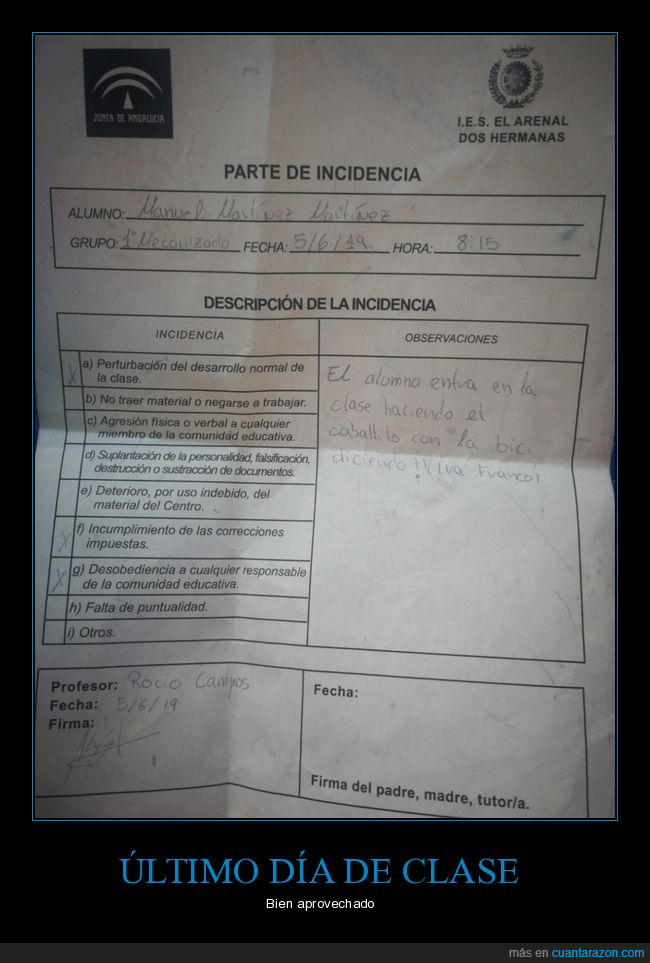 JUNTA DE ANDALUCIA
I.E.S. EL ARENAL
DOS HERMANAS
PARTE DE INCIDENCIA
ALUMNO: Manuel Martínez Martínez
GRUPO: 1º Mecanizado FECHA: 5/6/19. HORA: 8:15
DESCRIPCIÓN DE LA INCIDENCIA
INCIDENCIA
OBSERVACIONES
X a) Perturbación del desarrollo normal de
la clase.
b) No traer material o negarse a trabajar.
c) Agresión física o verbal a cualquier
miembro de la comunidad educativa.
d) Suplantación de la personalidad, falsificación,
destrucción o sustracción de documentos.
e) Deterioro, por uso indebido, del
material del Centro.
X f) Incumplimiento de las correcciones
impuestas.
X g) Desobediencia a cualquier responsable
de la comunidad educativa.
h) Falta de puntualidad.
i) Otros.
El alumno entra en la
clase haciendo el
caballito con la bici
diciendo ¡Viva Franco!
Profesor: Rocio Campos
Fecha: 5/6/19
Firma:
Fecha:
Firma del padre, madre, tutor/a.
ÚLTIMO DÍA DE CLASE
Bien aprovechado
más en cuantarazon.com